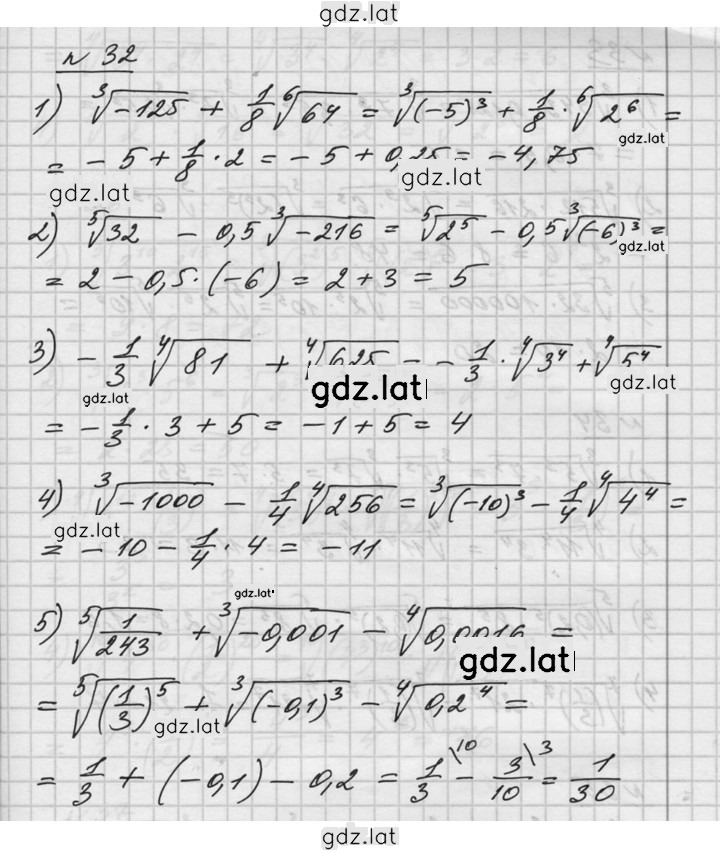 gdz.lat
№ 32
1) ∛(-125) + 1/8 ⁶√64 = ∛((-5)³) + 1/8 · ⁶√(2⁶) =
gdz.lat
= - 5 + 1/8 · 2 = - 5 + 0,25 = - 4,75
gdz.lat
gdz.lat
2) ⁵√32 - 0,5 ∛(-216) = ⁵√(2⁵) - 0,5 ∛((-6)³) =
gdz.lat
= 2 - 0,5 · (-6) = 2 + 3 = 5
3) - 1/3 ⁴√81 + ⁴√625 = - 1/3 · ⁴√(3⁴) + ⁴√(5⁴)
gdz.lat
gdz.lat
gdz.lat
= - 1/3 · 3 + 5 = - 1 + 5 = 4
4) ∛(-1000) - 1/4 ⁴√256 = ∛((-10)³) - 1/4 ⁴√(4⁴) =
gdz.lat
= - 10 - 1/4 · 4 = - 11
gdz.lat
5) ⁵√(1/243) + ∛(-0,001) - ⁴√(0,0016) =
gdz.lat
= ⁵√((1/3)⁵) + ∛((-0,1)³) - ⁴√(0,2⁴) =
gdz.lat
= 1/3 + (-0,1) - 0,2 = 1/3 \10 - 3/10 \3 = 1/30
gdz.lat